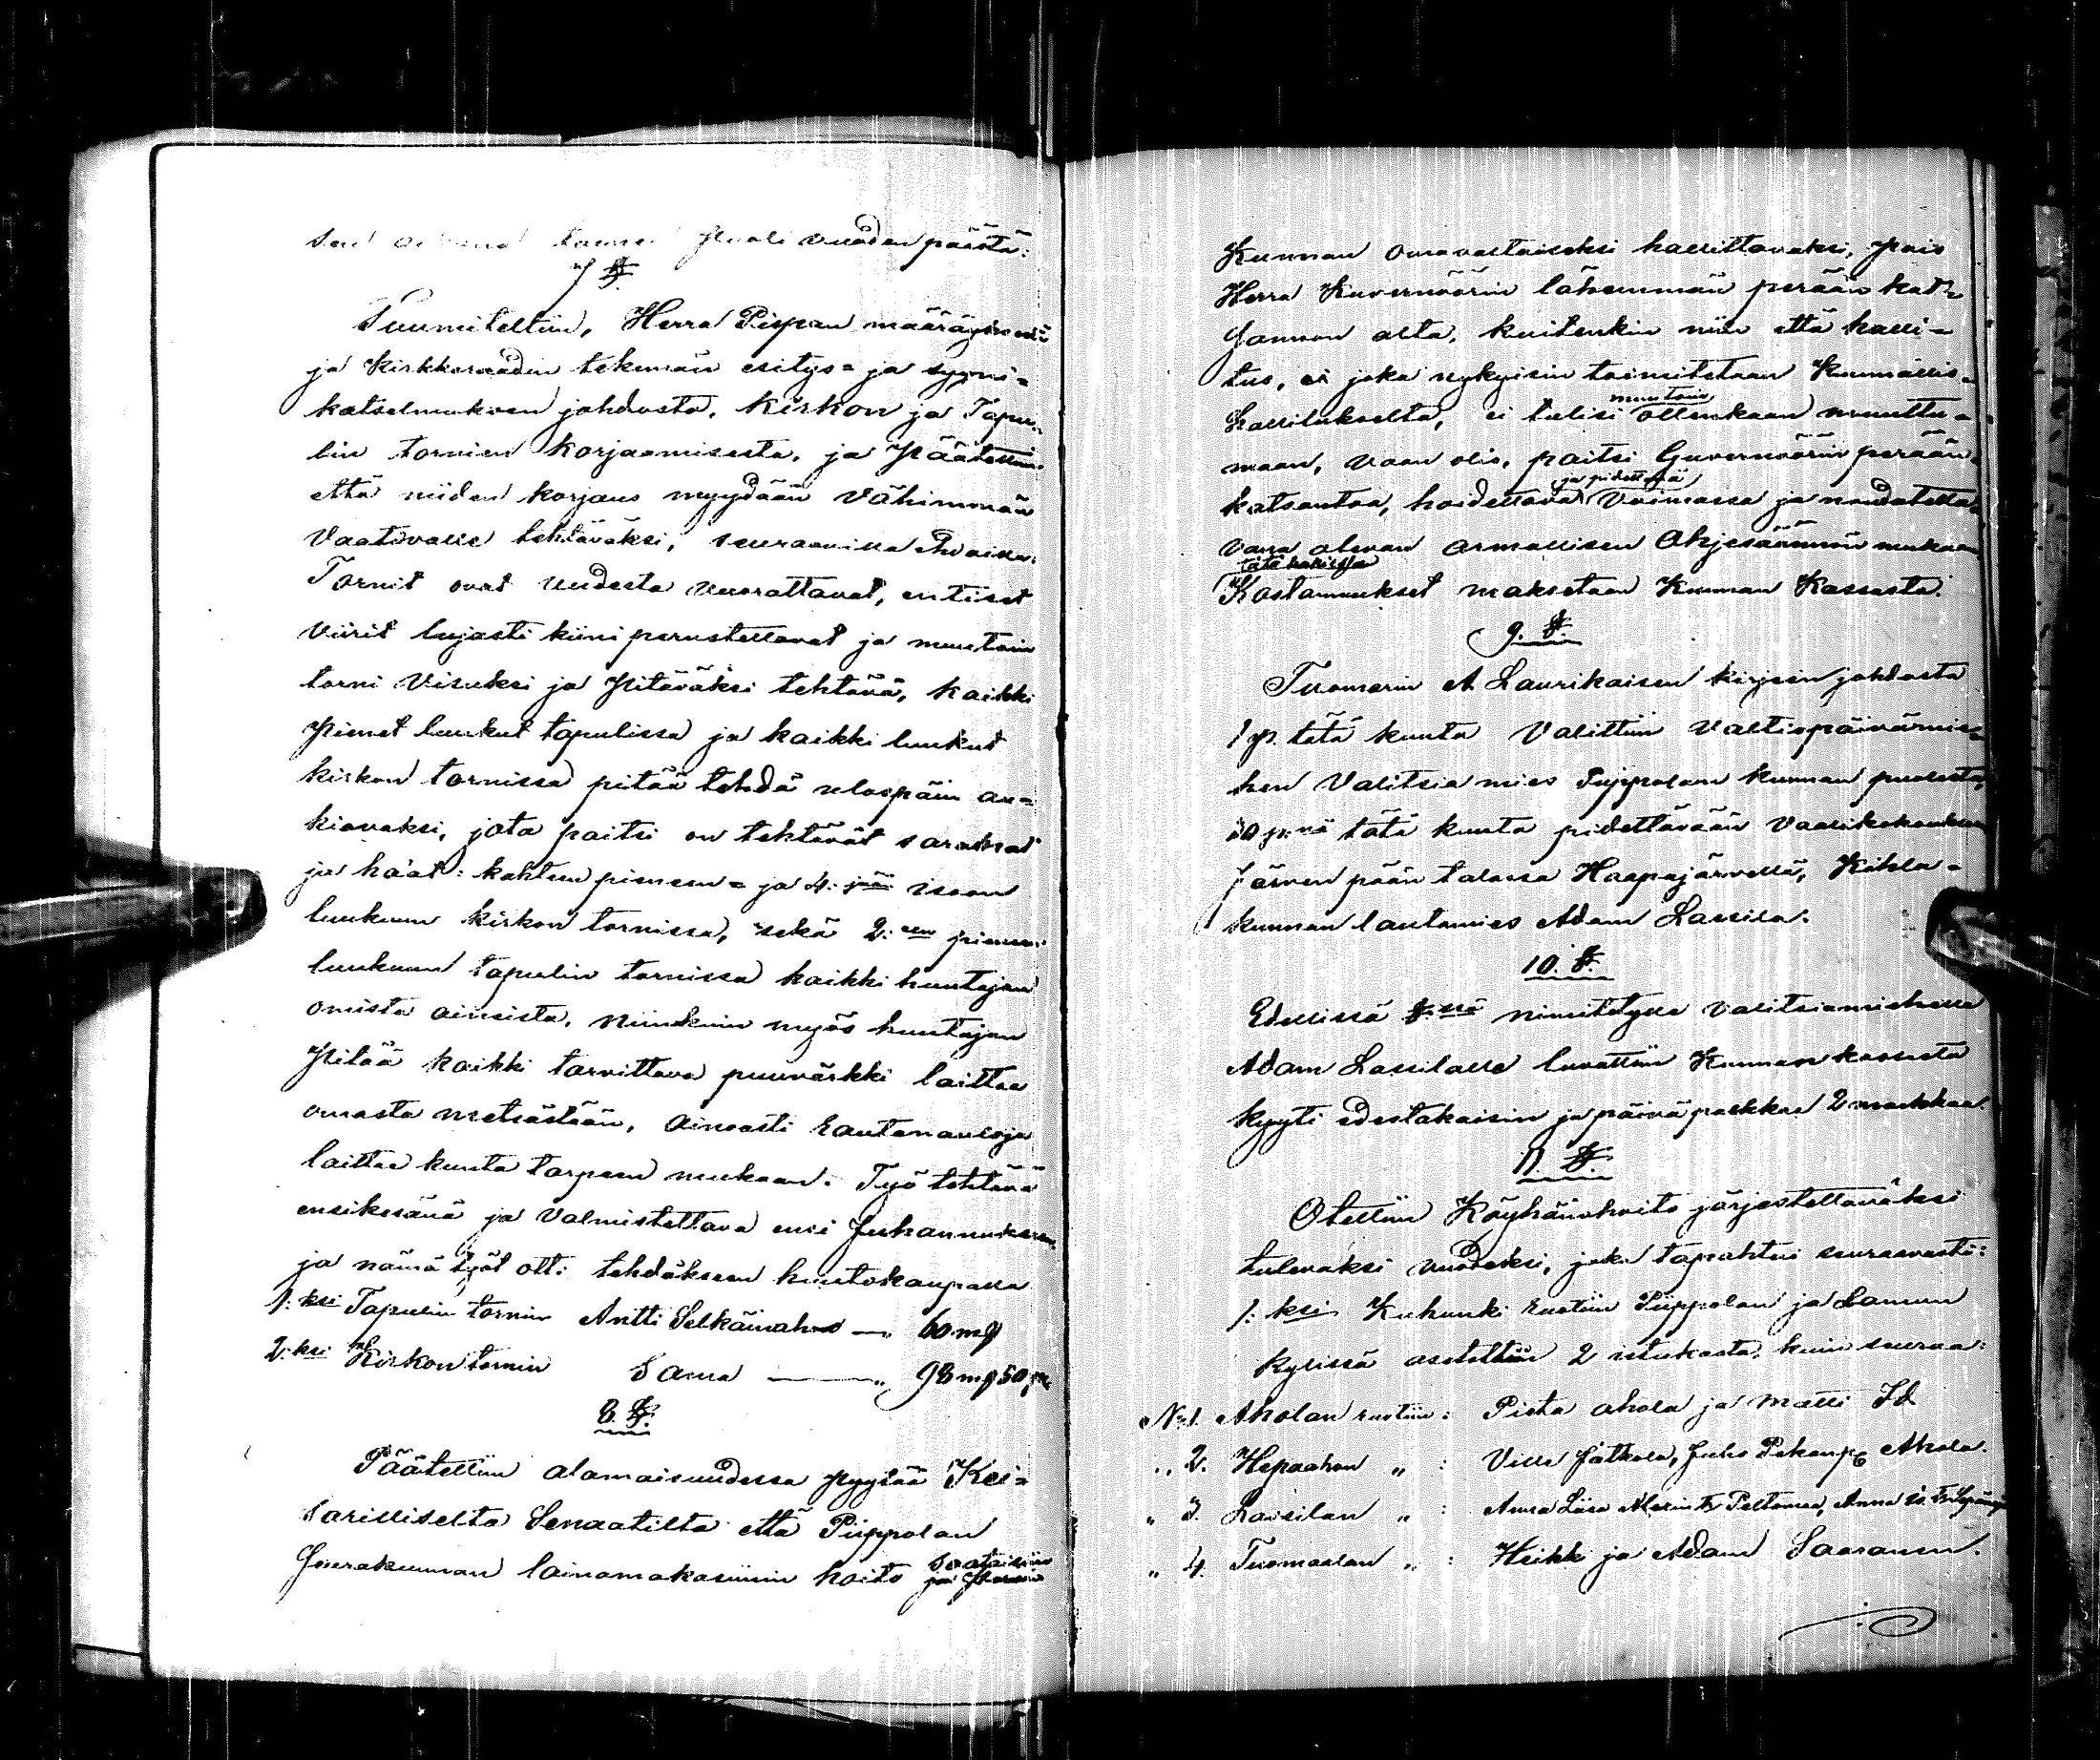 puoli vuoden päästä:
7 §.
Tuumiteltiin, Herra Pispan määräyksen
ja Kirkkoraadin tekemän esitys= ja syyni=
katselmuksen johdosta, Kirkon ja Tapu=
lin tornien korjaamisesta, ja Päätettiin
että niiden korjaus myydään Vähimmän
Vaativalle tehtäväksi, seuraavilla ehdoilla:
Tornit ovat uudesta vuorattavat, entiset
Viirit lujasti kiini perustettavat ja muutoin
torni Visuksi ja Pitäväksi tehtävä, kaikki
Pienet luukut tapulissa ja kaikki luukut
kirkon tornissa pitää tehdä ulospäin au=
kiavaksi, jota paitsi on tehtävät saranat
ja haat: kahteen pieneen= ja 4: isoon
luukuun kirkon tornissa, sekä 2:en pieneen
luukuun tapulin tornissa kaikki huutajan
omista aineista, niinkuin myös huutajan
Pitää kaikki tarvittava puuvärkki laittaa
omasta metsästään, Ainoasti Rautanauloja
laittaa kunta tarpeen mukaan. Työ tehtävä
ensikesänä ja Valmistettava ensi Juhannukseen
ja nämä työt otti tehdäkseen huutokaupalla
1:ksi Tapulin tornin Antti Selkäinaho — 60 mg
2:ksi Kirkon tornin Sama — „ 98 mg 50 p
8. §.
Päätettiin alamaisuudessa pyytää Kei=
sarilliselta Senaatilta että Piippolan
Seurakunnan lainamakasiinin hoito saataisiin
Kunnan omavaltaiseksi hallittavaksi, Pois
Herra Kuvernöörin lähemmän perään kat=
sannon alta, kuitenkin niin että halli=
tus, joka nykyisin toimitetaan Kunnallis=
Hallitukselta, ei tulisi muutoin ollenkaan muuttu=
maan, vaan olis, paitsi Guvernöörin perään=
katsantoa, hoidettava ja pidettävä Voimassa ja noudatetta=
vana olevan Armollisen Ohjesäännön mukaan
Kostannukset maksetaan Kunnan Kassasta.
9. §.
Tuomarin A Laurikaisen kirjein johdosta
1 p. tätä kuuta Valittiin Valtiopäivämie=
hen Valitsia mies Piippolan kunnan puolesta,
10 p:nä tätä kuuta pidettävään Vaalikokoukseen
Järven pään talossa Haapajärvellä, Kihla=
kunnan lautamies Adam Lassila.
10. §.
Edellisessä §:ssä nimitetylle Valitsiamiehelle
Adam Lassilalle luvattiin Kunnan kassasta
kyyti edestakaisin ja päiväpalkkaa 2 markkaa.
11 §.
Otettiin Köyhäinhoito järjestettäväksi
tulevaksi vuodeksi, joka tapahtui seuraavasti:
1:ksi Kuhunki ruotiin Piippolan ja Lamun
kylissä asetettiin 2 ruokasta, kuin seuraa:
No 1. Aholan ruotiin: Pieta ahola ja Matti Id
„ 2. Hepaahon „ : Ville Jätkola, Juho Pekanp. Ahola.
„ 3. Lassilan „ : Anna Liisa Peltonen, Anna
„ 4. Tuomaalan „ : Heikki ja Adam Saaranen.